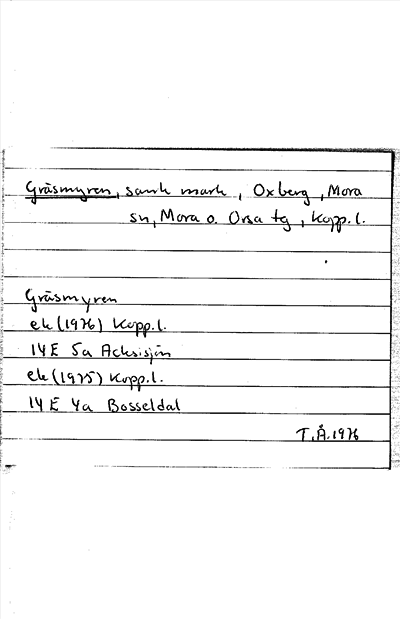 Gräsmyren, sank mark, Oxberg, Mora
sn, Mora o. Orsa tg, Kopp.l.
Gräsmyren
ek (1976) Kopp.l.
14E 5a Acksisjön
ek (1975) Kopp.l.
14E 4a Bosseldal
T.Å. 1976